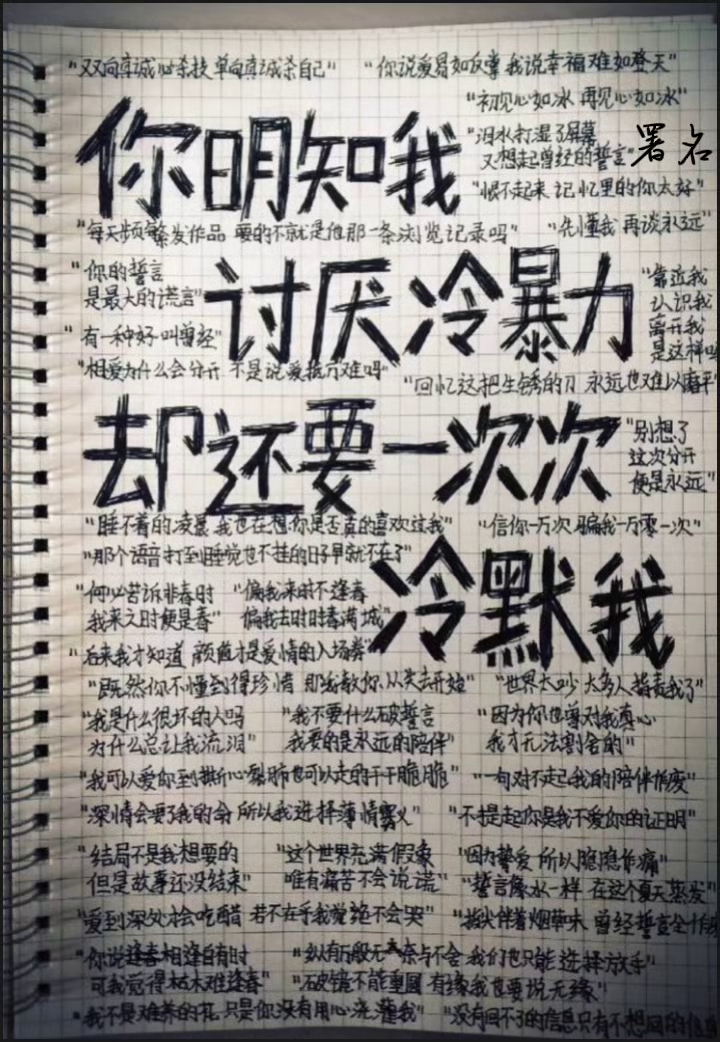 "双向真诚必杀技 单向真诚杀自己" "你说爱易如反掌 我说幸福难如登天"
"初见心如冰 再见心如冰"
你明知我
"泪水打湿了屏幕
又想起曾经的誓言"
署名
"恨不起来 记忆里的你太好"
"每天频繁发作品 要的不就是他那一条浏览记录吗" "先懂我 再谈永远"
"你的誓言
是最大的谎言"
讨厌冷暴力
"靠近我
认识我
离开我
是这样
"有一种好叫曾经"
"相爱为什么会分开 不是说爱抵万难吗"
"回忆这把生锈的刀 永远也难以
却还要一次次
"别想了
这次分开
便是永远"
"睡不着的凌晨 我也在想 你是否真的喜欢过我" "信你一万次 骗我一万零一次"
"那个语音打到睡觉也不挂的日子早就不在了"
冷默我
"何必苦诉非春时
我来之时便是春"
"偏我来时不逢春
偏我去时时春满城"
"后来我才知道 颜值才是爱情的入场券"
"既然你不懂到得珍惜 那我教你从失去开始" "世界太吵 太多人指责我了"
"我是什么很坏的人吗
为什么总让我流泪"
"我不要什么破誓言
我要的是永远的陪伴"
"因为你也曾对我真心
我才无法割舍的"
"我可以爱你到撕心裂肺也可以走的干干脆脆" "一句对不起我的陪伴作废"
"深情会要了我的命 所以我选择薄情寡义" "不提起你是我不爱你的证明"
"结局不是我想要的
但是故事还没结束"
"这个世界充满假象
唯有痛苦不会说谎"
"因为挚爱 所以隐隐作痛"
"誓言像水一样 在这个夏天蒸发"
"爱到深处才会吃醋 若不在乎我觉绝不会哭" "指尖伴着烟草味 曾经誓言全作
"你说逢春相逢自有时
可我觉得枯木难逢春"
"纵有万般无奈与不舍 我们也只能选择放手"
"破镜不能重圆 有缘我也要说无缘"
"我不是难养的花 只是你没有用心浇灌我" "没有回不了的信息只有不想回的